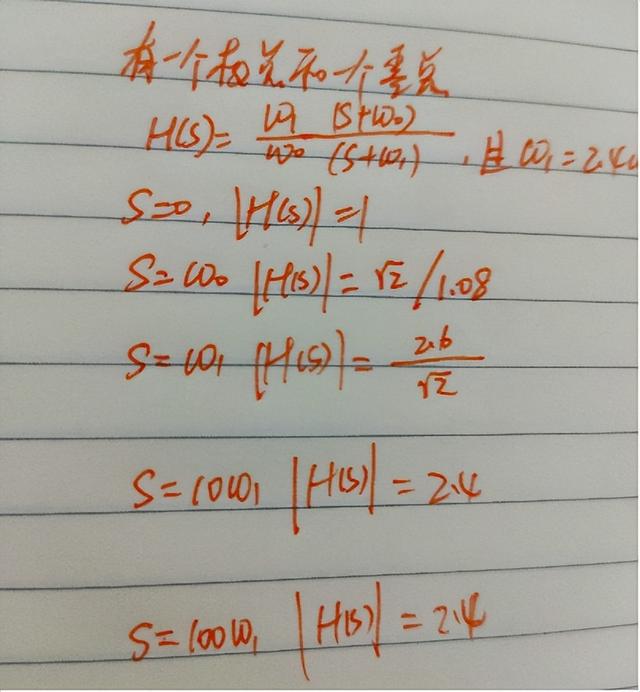 有一个极点和一个零点
H(s)= ω1 (s+ω0) / ω0 (s+ω1) , 且 ω1=2.4ω
S=0, |H(s)|=1
S=ω0 |H(s)|=√2/1.08
S=ω1 |H(s)|= 2.6/√2
S=10ω1 |H(s)|=2.4
S=100ω1 |H(s)|=2.4